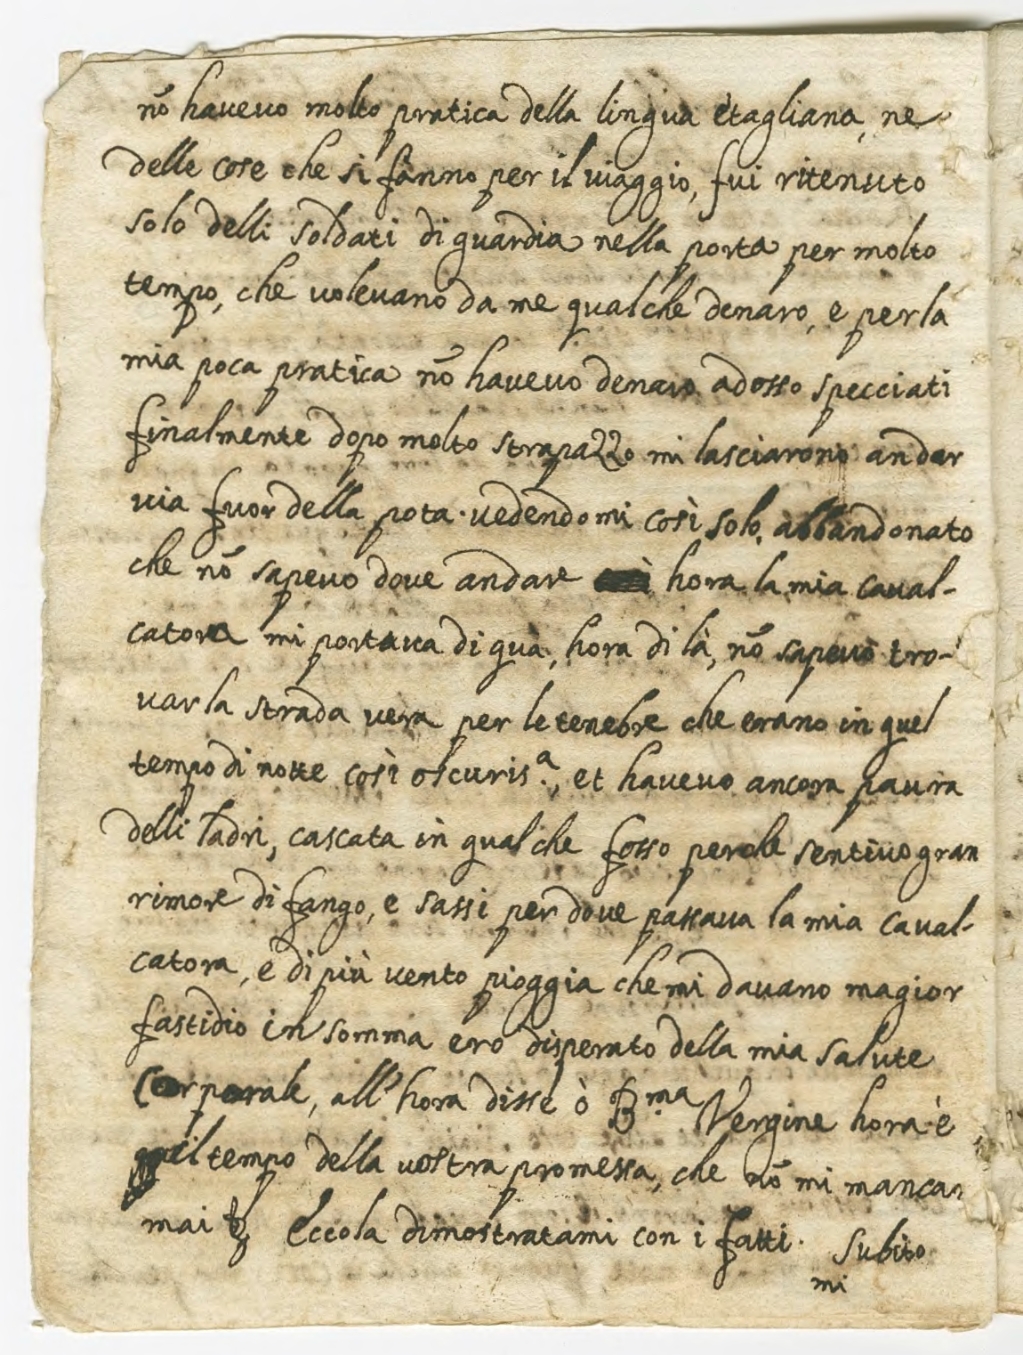 nō havevo molto pratica della lingua etagliana, ne
delle cose che si fanno per il viaggio, fui ritenuto
solo delli soldati di guardia nella porta per molto
tempo, che volevano da me qualche denaro, e per la
mia poca pratica nō havevo denaro adosso specciati
finalmente dopo molto strapazzo mi lasciarono andar
via fuor della pota. vedendomi così solo, abbandonato
che nō sapevo dove andare hora la mia caval-
catora mi portava di quà, hora di là, nō sapevo tro-
var la strada vera per le tenebre che erano in quel
tempo di notte così oscuris.ª, et havevo ancora paura
delli ladri, cascata in qualche fosso perche sentivo gran
rimore di fango, e sassi per dove passava la mia caval-
catora, e di più vento pioggia che mi davano magior
fastidio in somma ero disperato della mia salute
Corporale, all'hora disse ò B.ma Vergine hora è
il tempo della vostra promessa, che nō mi mancar
mai Eccola dimostratami con i fatti. Subito
mi